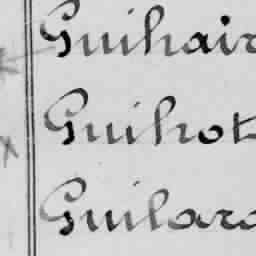 Guihair
Guihot
Guilard